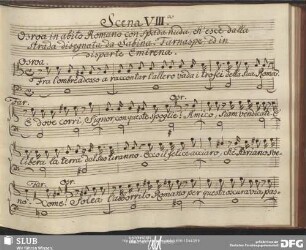 Scena VIII
Osroa in abito Romano con spada nuda, ch'esce dalla
Strada disegnata da Sabina. Farnaspe, ed in
disparte Emirena.
Osroa.
Fra l'ombre adesso a raccontar l'altero vada i trofei della sua Roma.
Far. Osr.
E dove corri, Signor con queste spoglie? Amico, siam vendicati. È
libera la terra dal suo tiranno. Ecco il felice acciaro, che Adriano sve-
Far. Osr.
nò. Come! Solea l'aborrito Romano per questa oscura via pas-
SLUB
DFG